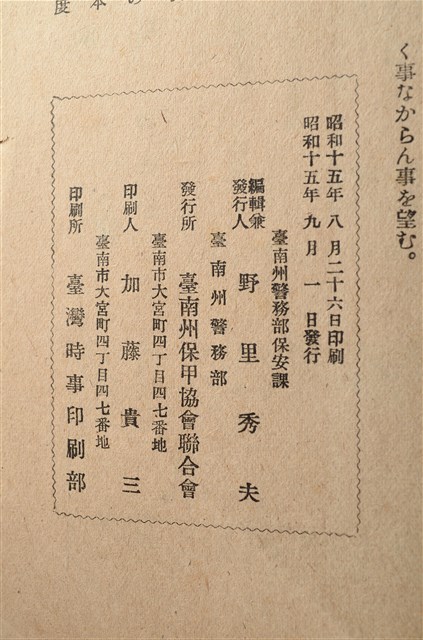 く事なからん事を望む。
昭和十五年八月二十六日印刷
昭和十五年九月一日發行
臺南州警務部保安課
編輯兼
發行人 野里秀夫
臺南州警務部
發行所 臺南州保甲協會聯合會
臺南市大宮町四丁目四七番地
印刷人 加藤貴三
臺南市大宮町四丁目四七番地
印刷所 臺灣時事印刷部
本の
度